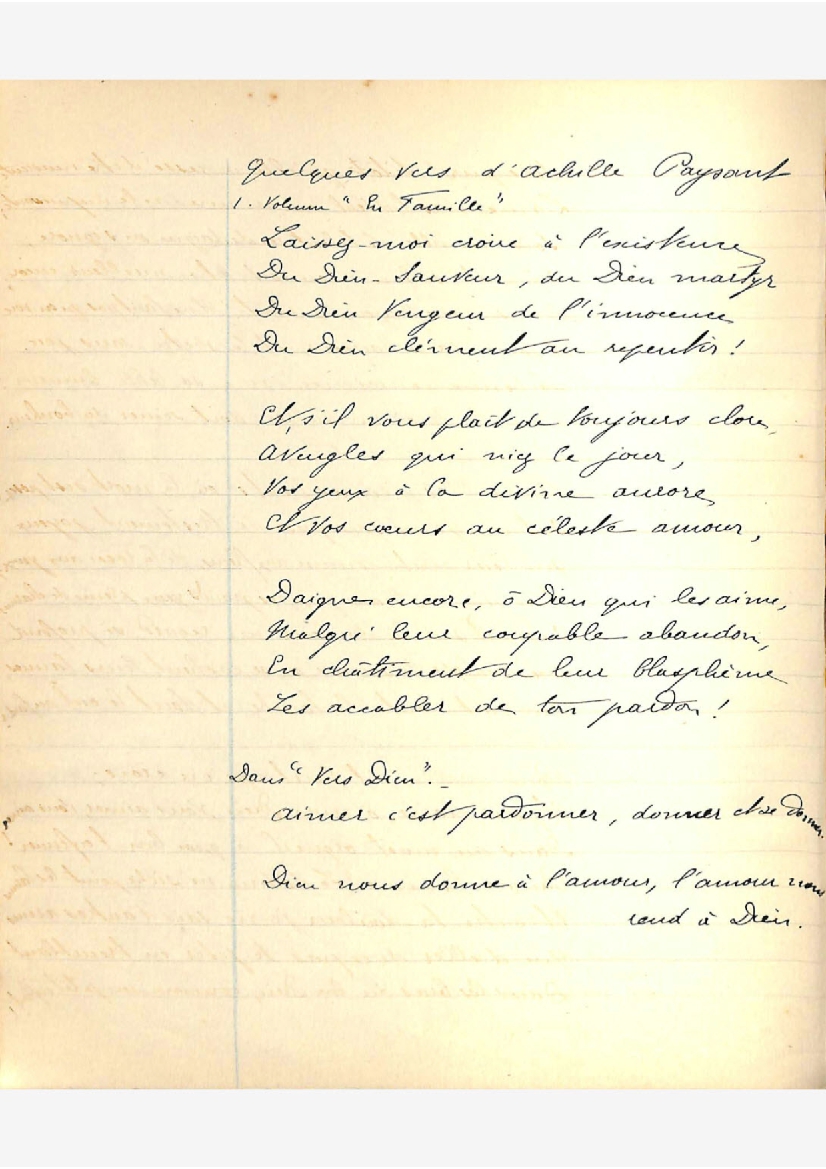 Quelques vers d'Achille Paysant
1. Volume "En Famille"
Laissez-moi croire à l'existence
Du Dieu-Sauveur, du Dieu martyr
Du Dieu Vengeur de l'innocence
Du Dieu clément au repentir !
Et, s'il vous plaît de toujours clore,
Aveugles qui niez le jour,
Vos yeux à la divine aurore,
Et vos cœurs au céleste amour,
Daignes encore, ô Dieu qui les aime,
Malgré leur coupable abandon,
En châtiment de leur blasphème
Les accabler de ton pardon !
Dans "Vers Dieu".-
Aimer c'est pardonner, donner et se donner.
Dieu nous donne à l'amour, l'amour nous
rend à Dieu.